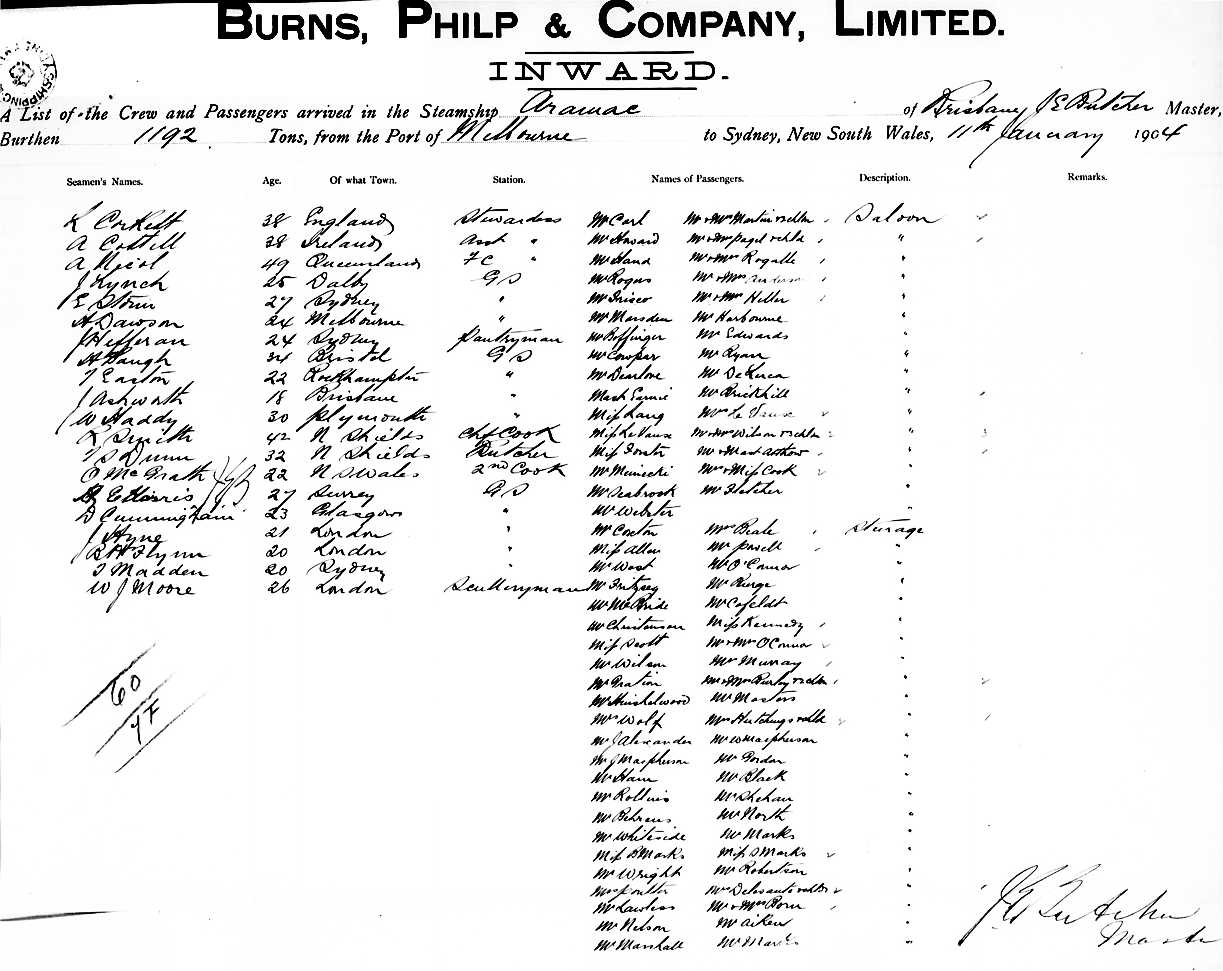 BURNS, PHILP & COMPANY, LIMITED.
INWARD.
A List of the Crew and Passengers arrived in the Steamship Aramac of Brisbane J E Butcher Master,
Burthen 1192 Tons, from the Port of Melbourne to Sydney, New South Wales, 11th January 1904
Seamen's Names. Age. Of what Town. Station. Names of Passengers. Description. Remarks.
L Corkett 38 England Stewardess Mr Carl Mr & Mrs Martin & chldn Saloon
A Cottell 38 Ireland Asst " Mr Howard Mr & Mrs Pagel & chld "
A Nicol 49 Queensland FC " Mr Hand Mr & Mrs Rogalle "
J Lynch 25 Dalby GS Mr Rogers Mr & Mrs "
E Storm 27 Sydney " Mr Frisco Mr & Mrs Heller "
A Dawson 24 Melbourne " Mr Marsden Mr Harbourne "
J Heffernan 24 Sydney Pantryman Mr Boffinger Mr Edwards "
A Baugh 34 Bristol GS Mr Cowper Mr Ryan "
T Easton 22 Rockhampton " Mr Dearlove Mr De Luca "
J Ashworth 18 Brisbane " Mast Earnie Mr Brickhill "
W Haddy 30 Plymouth " Miss Lang Mrs Le Vause "
L Smith 42 N Shields Chf Cook Miss Le Vause Mr & Mrs Wilson & chldn "
T S Dunn 32 N Shields Butcher Miss Forster Mr & Mast "
O McGrath 22 N S Wales 2nd Cook Mr Muniecki Mr & Miss Cook "
G E Harris 27 Surrey GS Mr Seabrook Mr Fletcher "
D Cunningham 23 Glasgow " Mr Webster "
J Hyne 21 London " Mr Coxton Mrs Beale Sturage
B H Flynn 20 London " Miss Allen Mr Powell "
T Madden 20 Sydney Mr West Mr O'Connor "
W J Moore 26 London Sculleryman Mr Fritzseg Mr Burge "
Mr McBride Mr Cofeldt "
Mr Christenson Miss Kennedy "
Miss Scott Mr & Mrs O'Connor "
Mr Wilson Mr Murray "
Mr Gration Mr & Mrs Burley & chldn "
60
Mr Hinshelwood Mr Masters "
4 F
Mrs Wolf Mrs Hutchings & chld "
Mr J Alexander Mr W Macpherson "
Mr J Macpherson Mr Gordon "
Mr Ham Mr Black "
Mr Rollins Mr Shehan "
Mr Behrens Mr North "
Mr Whiteside Mr Marks "
Miss B Marks Miss D Marks "
Mr Wright Mr Robertson "
Mrs Poulter Mrs "
Mr Lawless Mr & Mrs Born "
Mr Nelson Mr Aiken "
Mr Marshall Mr Marks "
J E Butcher
Master